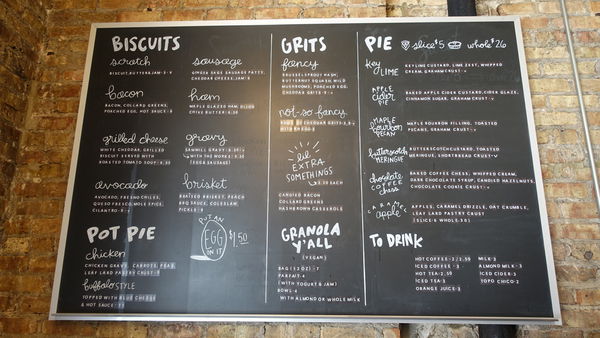 BISCUITS
scratch
BISCUIT, BUTTER & JAM • 5 • V
sausage
GINGER SAGE SAUSAGE PATTY,
CHEDDAR CHEESE, JAM • 8
bacon
BACON, COLLARD GREENS,
POACHED EGG, HOT SAUCE
ham
MAPLE GLAZED HAM, DIJON
CHIVE BUTTER
grilled cheese
WHITE CHEDDAR, GRILLED
BISCUIT SERVED WITH
ROASTED TOMATO SOUP
gravy
SAWMILL GRAVY
WITH THE WORKS
(EGG & SAUSAGE)
avocado
AVOCADO, FRESNO CHILES,
QUESO FRESCO, LIME SPICE,
CILANTRO
brisket
ROASTED BRISKET, PEACH
BBQ SAUCE, COLESLAW,
PICKLE • 9
PUT AN
EGG
ON IT
$1.50
POT PIE
chicken
CHICKEN GRAVY, CARROTS, PEAS,
LEAF LARD PASTRY CRUST
buffalo STYLE
TOPPED WITH BLUE CHEESE
& HOT SAUCE
GRITS
fancy
BRUSSEL SPROUT HASH,
BUTTERNUT SQUASH, WILD
MUSHROOMS, POACHED EGG,
CHEDDAR GRITS
not-so fancy
CHEDDAR GRITS
WITH BACON
lil
EXTRA
SOMETHINGS
EACH
CANDIED BACON
COLLARD GREENS
HASHBROWN CASSEROLE
GRANOLA
Y'ALL
(VEGAN)
BAG (12 OZ) • 7
PARFAIT • 4
(WITH YOGURT & JAM)
BOWL • 4
WITH ALMOND OR WHOLE MILK
PIE slice $5 whole $26
key LIME
KEY LIME CUSTARD, LIME ZEST, WHIPPED
CREAM, GRAHAM CRUST • V
APPLE cider PIE
BAKED APPLE CIDER CUSTARD, CIDER GLAZE,
CINNAMON SUGAR, GRAHAM CRUST • V
MAPLE bourbon PECAN
MAPLE BOURBON FILLING, TOASTED
PECANS, GRAHAM CRUST • V
butterscotch MERINGUE
BUTTERSCOTCH CUSTARD, TOASTED
MERINGUE, SHORTBREAD CRUST • V
chocolate COFFEE chess
BAKED COFFEE CHESS, WHIPPED CREAM,
DARK CHOCOLATE SYRUP, CANDIED HAZELNUTS,
CHOCOLATE COOKIE CRUST • V
CARAMEL apple
APPLES, CARAMEL DRIZZLE, OAT CRUMBLE,
LEAF LARD PASTRY CRUST
(SLICE 6 WHOLE 30)
TO DRINK
HOT COFFEE • 2/2.50
ICED COFFEE • 3
HOT TEA • 2.50
ICED TEA • 3
ORANGE JUICE • 3
MILK • 2
ALMOND MILK • 3
ICED CIDER • 3
TOPO CHICO • 2